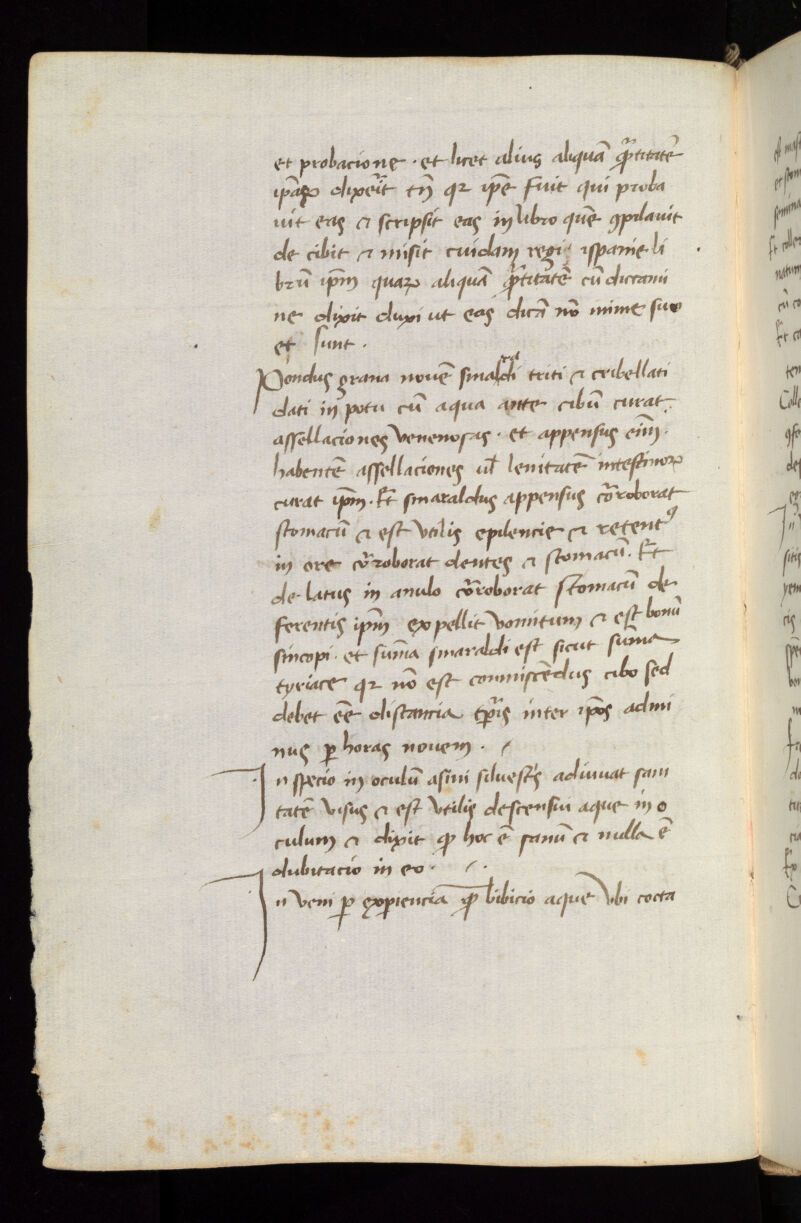 et probacione · et licet alius aliquā q̄ntitatē
ip̄aꝝ dixerit tn̄ qꝛ ip̄e fuit qui proba
uit eas ⁊ scripsit eas in libro quē ꝯpilauit
de cibit ⁊ misit cuidam regi ispanie li
brū ip̄m quaꝝ aliquā q̄ntitatē cū dictami
ne dixit duxi ut eas dicā nō mime suo
et sunt ·
Pondus grana nouē smaraldi triti ⁊ cribellati
dati in potu cū aqua ante cibū curat
assellaciones venenosas · et appensus
habentē assellaciones ul̄ lenitatē intestinoꝝ
curat ip̄m · Et smaraldus appensus cōroborat
stomacū ⁊ est vtilis epilencie ⁊ retentꝰ
in ore cōroborat dentes ⁊ stomacū · Et
de latus in anulo cōroborat stomacū de
ferentis ip̄m expellit vomitum ⁊ est bonū
sincopi · et sum̄a smaraldi est sicut sum̄a
tyriace qꝛ nō est commiscēdus cibo sed
debet eē distancia tp̄ris inter ip̄os admi
nus ꝑ horas nouem ·
Inspecio in oculū asini siluestris adiuuat sani
tatē visus ⁊ est vtilis descensui aque in o
culum ⁊ dixit ꝙ hoc ē sanū ⁊ nulla ē
dubitacio in eo ·
Inueni ꝑ exꝑiencia ꝙ bibicio aque vbi cocta